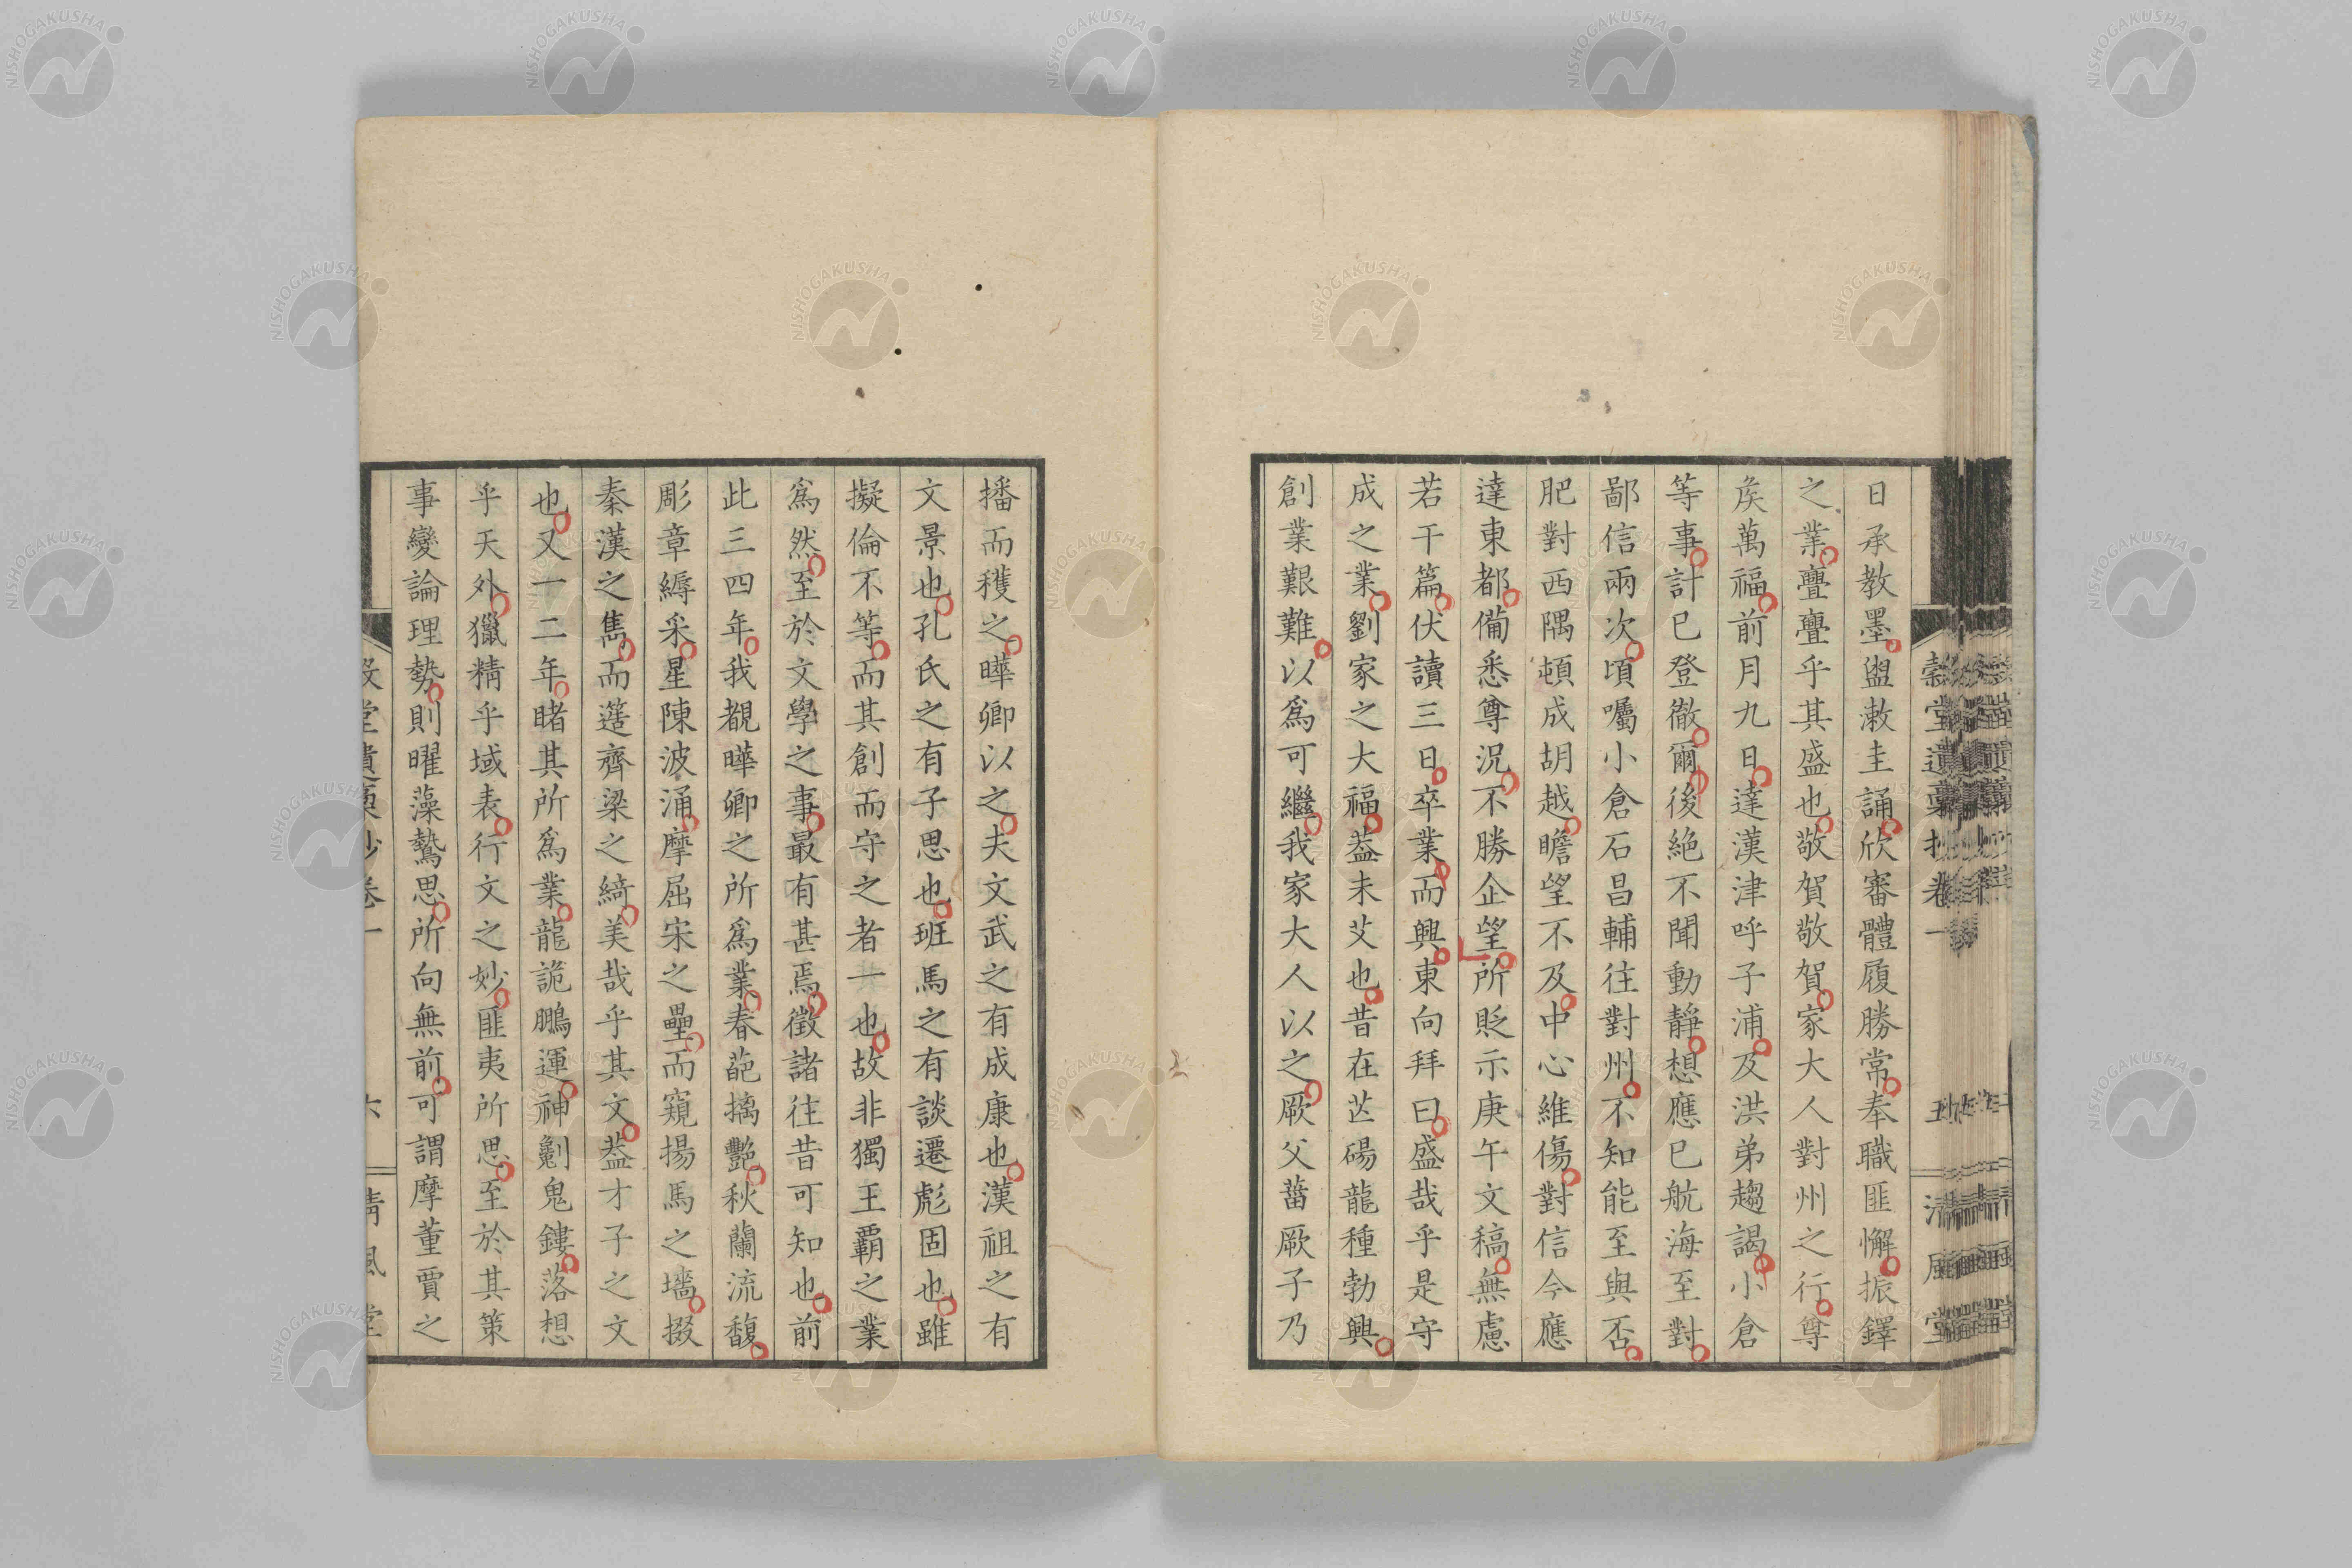 日承教墨盥漱圭誦欣審體履勝常奉職匪懈振鐸
之業亹亹乎其盛也敬賀敬賀家大人對州之行尊
矦萬福前月九日達漢津呼子浦及洪弟趨謁小倉
等事計已登徹爾後絶不聞動靜想應已航海至對
鄙信兩次頃囑小倉石昌輔往對州不知能至與否
肥對西隅頓成胡越瞻望不及中心維傷對信今應
達東都備悉尊況不勝企望所貶示庚午文稿無慮
若干篇伏讀三日卒業而興東向拜曰盛哉乎是守
成之業劉家之大福葢未艾也昔在芒碭龍種勃興
創業艱難以爲可繼我家大人以之厥父菑厥子乃
播而穫之曄卿以之夫文武之有成康也漢祖之有
文景也孔氏之有子思也班馬之有談遷彪固也雖
擬倫不等而其創而守之者一也故非獨王覇之業
爲然至於文學之事最有甚焉徵諸往昔可知也前
此三四年我覩曄卿之所爲業春葩摛艷秋蘭流馥
彫章縟采星陳波涌摩屈宋之壘而窺揚馬之墻掇
秦漢之雋而躧齊梁之綺美哉乎其文葢才子之文
也又一二年睹其所爲業龍詭鵬運神剿鬼鏤落想
乎天外獵精乎域表行文之妙匪夷所思至於其策
事變論理勢則曜藻鷙思所向無前可謂摩董賈之
穀堂遺稾抄卷一
五
清風堂
堂遺稾抄卷一
六
清風堂
NISHOGAKUSHA